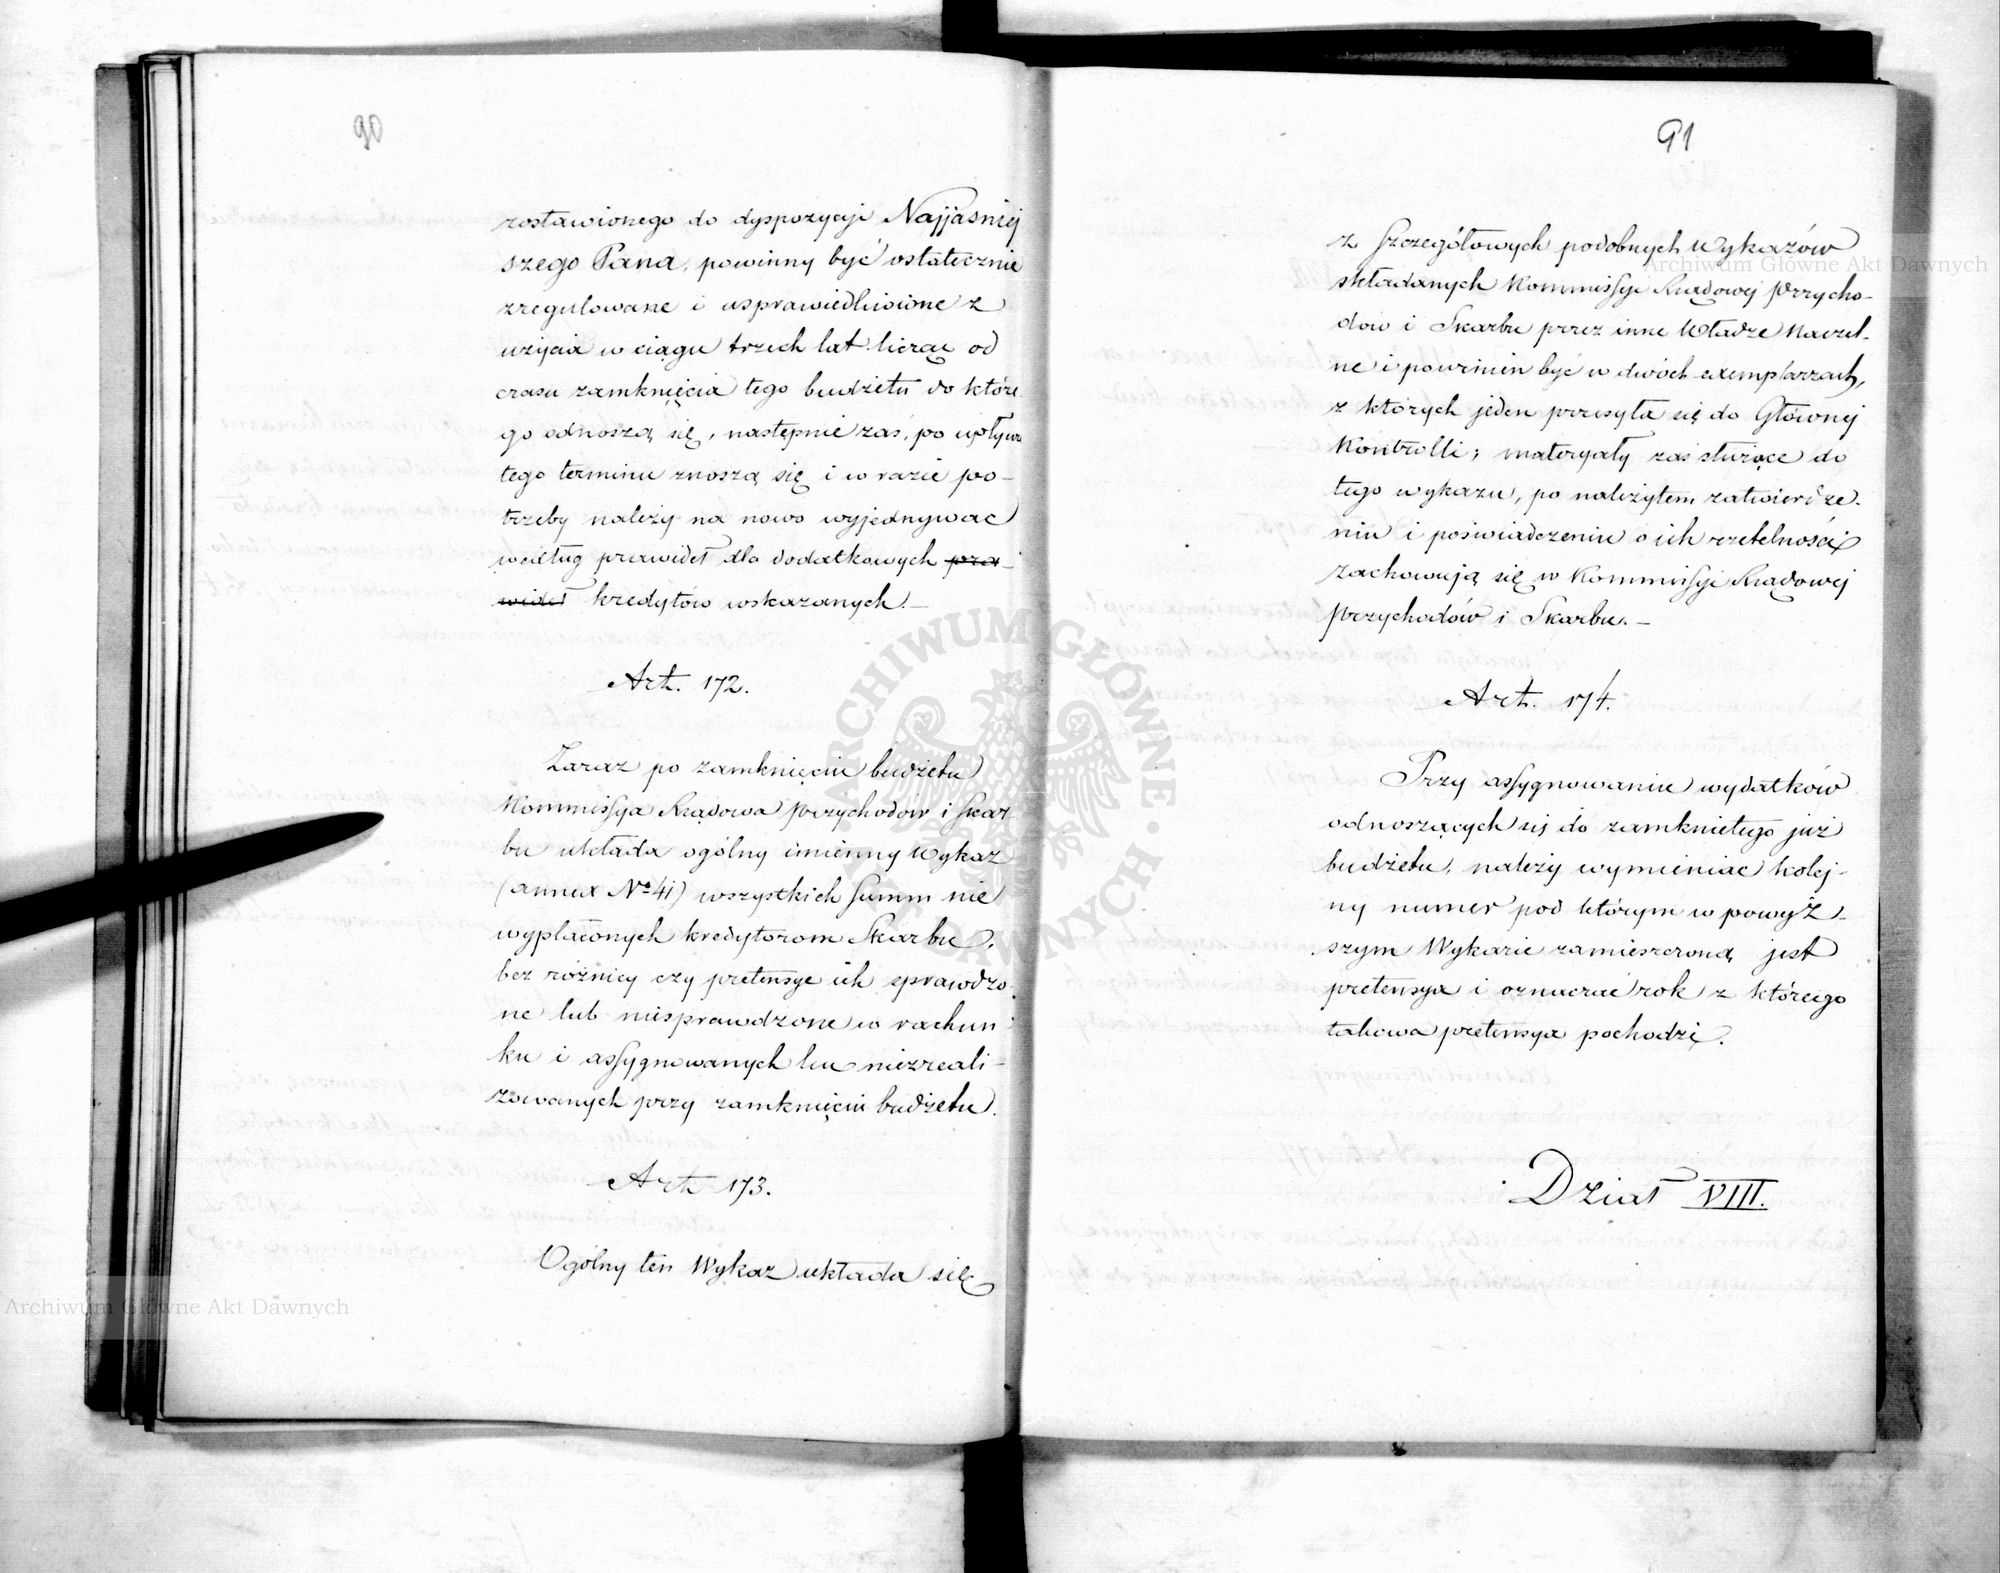 90
zostawionego do dyspozycji Najjaśniej
szego Pana, powinny być ostatecznie
zregulowane i usprawiedliwione z
użycia w ciągu trzech lat licząc od
czasu zamknięcia tego budżetu do które
go odnoszą się, następnie zaś, po upływie
tego terminu znoszą się i w razie po-
trzeby należy na nowo wyjednywać
według prawideł dla dodatkowych pra-
wideł kredytów wskazanych.—
Art. 172.
Zaraz po zamknięciu budżetu
Kommissya Rządowa Przychodów i Skar
bu układa ogólny imienny Wykaz
(annex № 41) wszystkich Summ nie
wypłaconych kredytorom Skarbu,
bez różnicy czy pretensye ich sprawdzo
ne lub niesprawdzone w rachun
ku i assygnowanych lecz niezreali-
zowanych przy zamknięciu budżetu.
Art. 173.
Ogólny ten Wykaz układa się
91
z Szczegółowych podobnych Wykazów
składanych Kommissyi Rządowej Przycho-
dów i Skarbu przez inne Władze Naczel-
ne i powinien być w dwóch exemplarzach,
z których jeden przesyła się do Głównej
Kontrolli; materyały zaś służące do
tego wykazu, po należytem zatwierdze-
niu i poświadczeniu o ich rzetelności
zachowują się w Kommissyi Rządowej
Przychodów i Skarbu.—
Art. 174.
Przy assygnowaniu wydatków
odnoszących się do zamkniętego już
budżetu, należy wymieniać kolej-
ny numer pod którym w powyż-
szym Wykazie zamieszczoną jest
pretensya i oznaczać rok z którego
takowa pretensya pochodzi.
Dział VIII.
Archiwum Główne Akt Dawnych
Archiwum Główne Akt Dawnych
ARCHIWUM GŁÓWNE AKT DAWNYCH